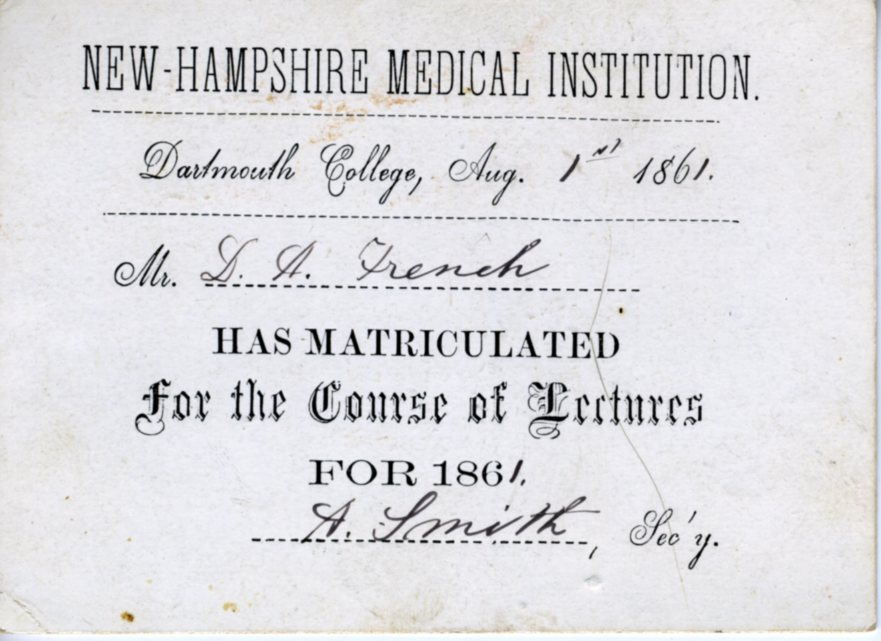 NEW-HAMPSHIRE MEDICAL INSTITUTION.
Dartmouth College, Aug. 1st 1861.
Mr. D. A. French
HAS MATRICULATED
For the Course of Lectures
FOR 1861.
A. Smith, Sec'y.